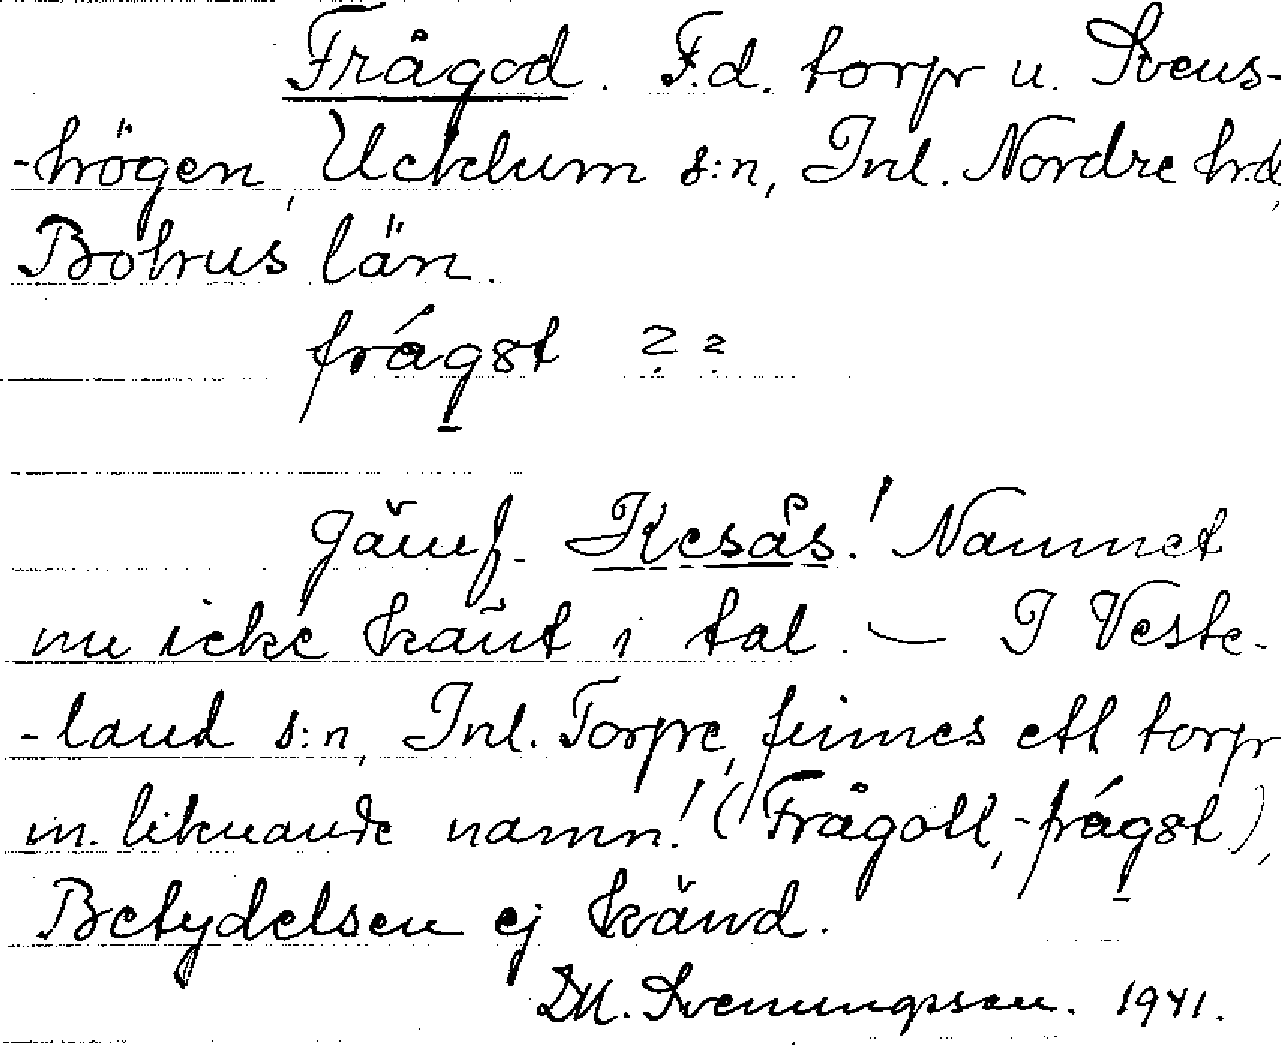 Frågod. F.d. torp u. Svens-
-högen, Ucklum s:n, Inl. Nordre h:d,
Bohus län.
frágst ? ?
Jämf. Kesås! Namnet
nu icke känt i tal. — I Veste-
-land s:n, Inl. Torpe, finnes ett torp
m. liknande namn! (Frågott, -frágst),
Betydelsen ej känd.
D.M. Svenungsson. 1941.